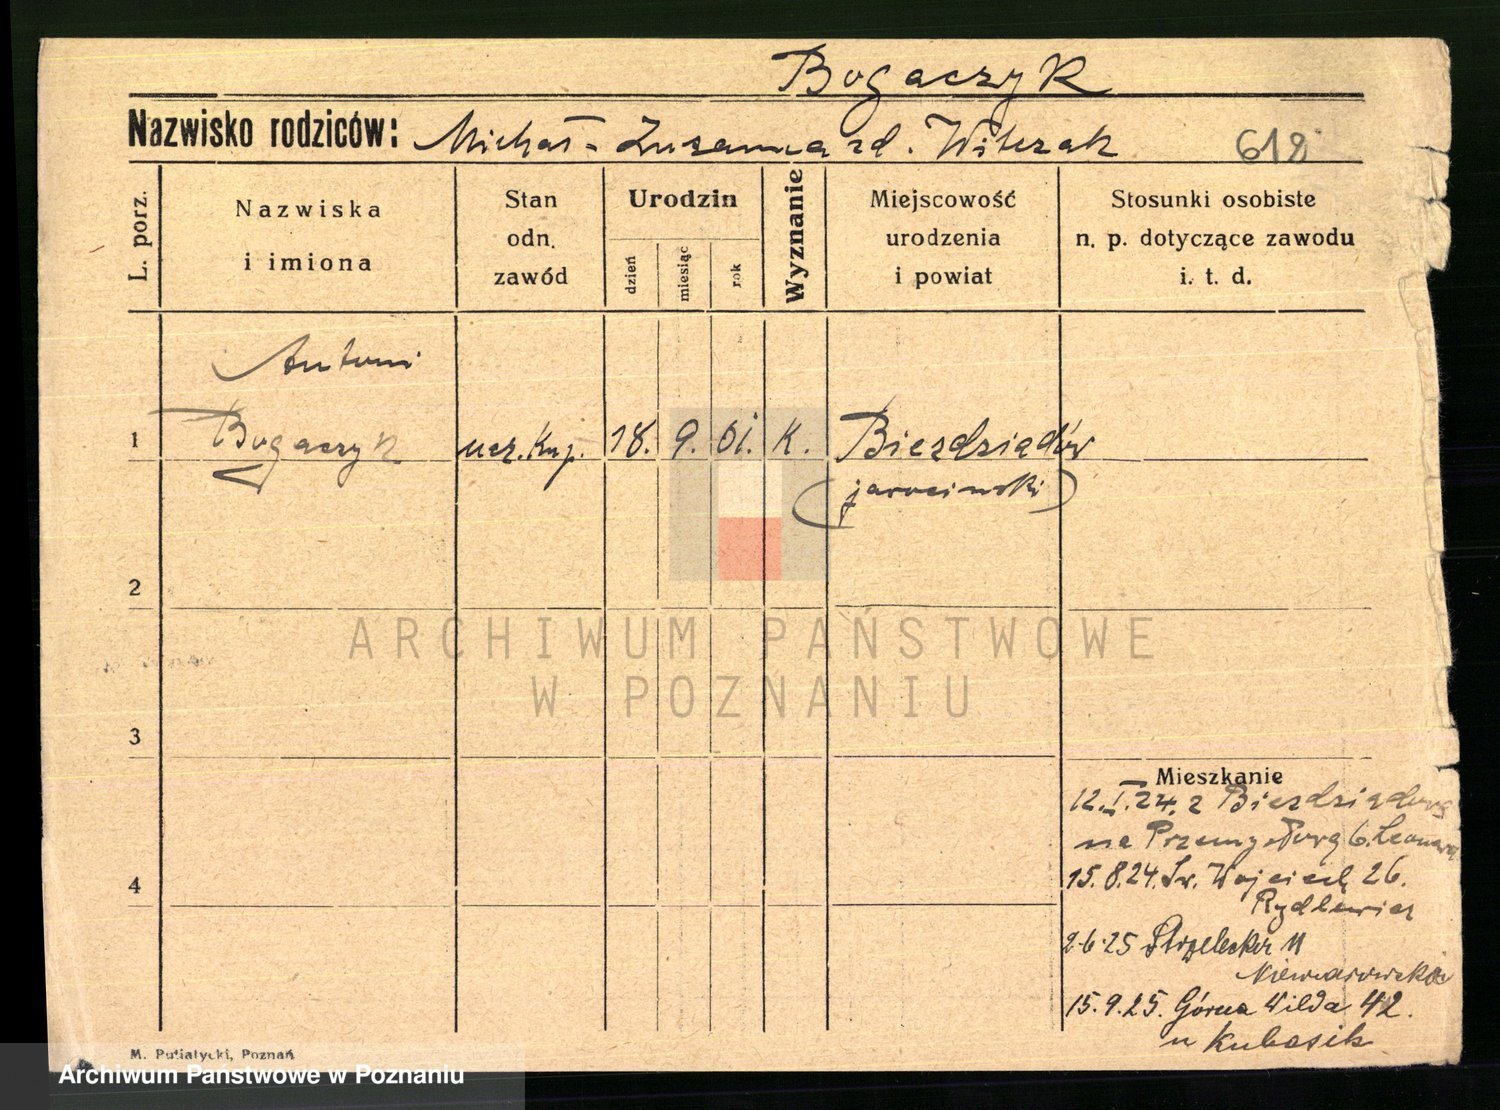 Bogaczyk
Nazwisko rodziców: Michał - Zuzanna zd. Witczak 618
L. porz.
Nazwiska
i imiona
Stan
odn.
zawód
Urodzin
dzień
miesiąc
rok
Wyznanie
Miejscowość
urodzenia
i powiat
Stosunki osobiste
n. p. dotyczące zawodu
i. t. d.
Antoni
1 Bogaczyk ucz. Kup. 18. 9. 01. K. Biezdziadów
(jarocinski)
2
3
4
Mieszkanie
12.I.24. z Biezdziadowa
na Przemysłową 6.
15.8.24. Św. Wojciech 26.
Rydlewicz
2.6.25 Strzelecka 11
15.9.25. Górna Wilda 42.
u Kubasik
M. Putiatycki, Poznań
ARCHIWUM PAŃSTWOWE
W POZNANIU
Archiwum Państwowe w Poznaniu